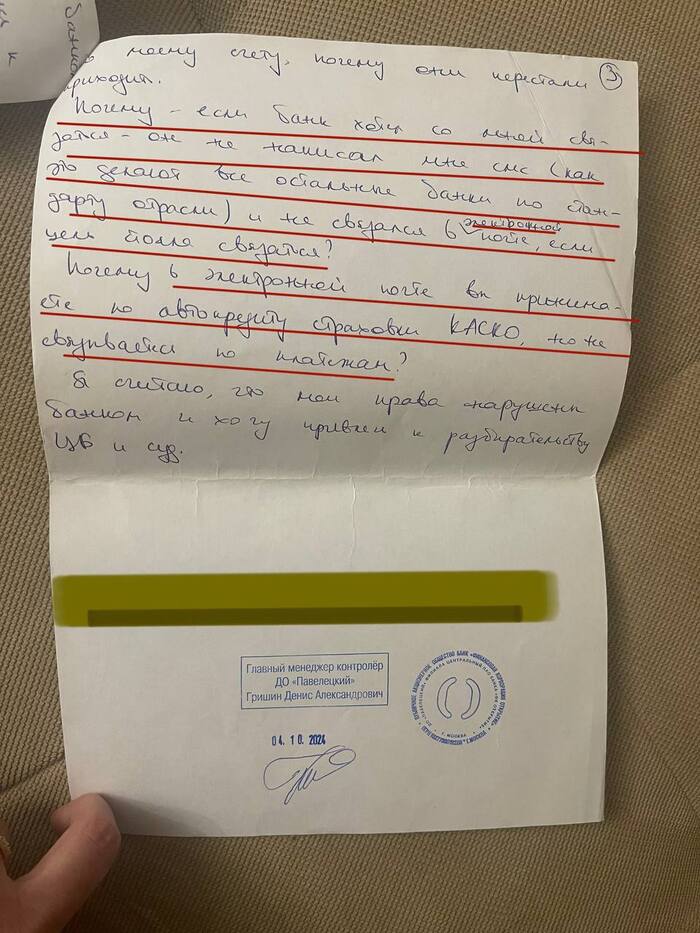 моему счету, почему они перестали 3
приходить.
Почему - если банк хотел со мной свя-
заться - он не написал мне смс (как
это делают все остальные банки по стан-
дарту отрасли) и не связался в электронной почте, если
цель была связаться?
Почему в электронной почте вы принима-
ете по автокредиту страховки КАСКО, но не
связываетесь по платежам?
Я считаю, что мои права нарушены
банком и хочу привлечь к разбирательству
ЦБ и суд.
Главный менеджер контролёр
ДО «Павелецкий»
Гришин Денис Александрович
04. 10. 2024
ПУБЛИЧНОЕ АКЦИОНЕРНОЕ ОБЩЕСТВО БАНК «ФИНАНСОВАЯ КОРПОРАЦИЯ ОТКРЫТИЕ»
Г. МОСКВА